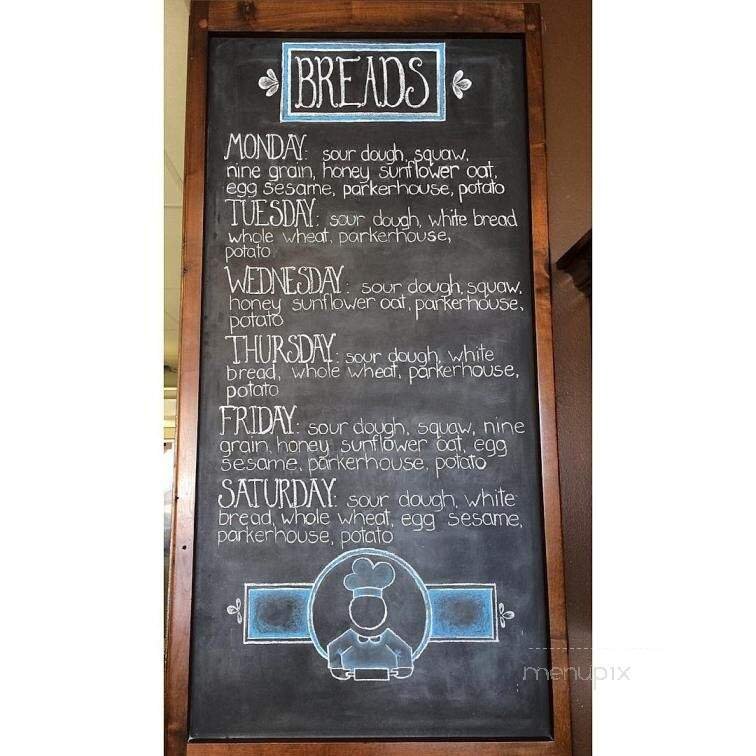 BREADS
MONDAY: sour dough, squaw,
nine grain, honey sunflower oat,
egg sesame, parkerhouse, potato
TUESDAY: sour dough, white bread
whole wheat, parkerhouse,
potato
WEDNESDAY: sour dough, squaw,
honey sunflower oat, parkerhouse,
potato
THURSDAY: sour dough, white
bread, whole wheat, parkerhouse,
potato
FRIDAY: sour dough, squaw, nine
grain, honey sunflower oat, egg
sesame, parkerhouse, potato
SATURDAY: sour dough, white
bread, whole wheat, egg sesame,
parkerhouse, potato
menupix